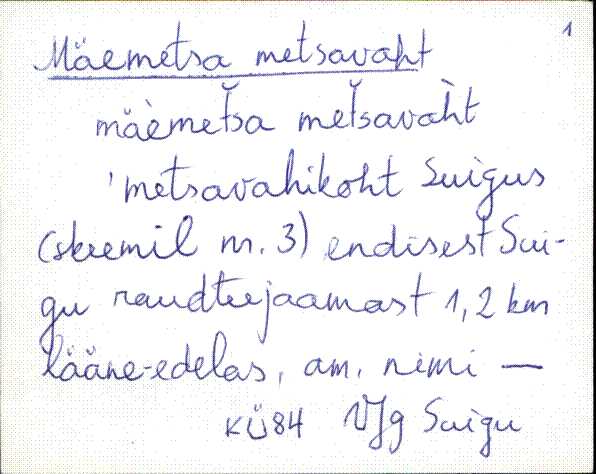 1
Mäemetsa metsavaht
mäèmet̆sa met̆savah̀t
'metsavahikoht Suigus
(skeemil nr. 3) endisest Sui-
gu raudteejaamast 1,2 km
lääne-edelas, am. nimi —
KÜ84 VJg Suigu